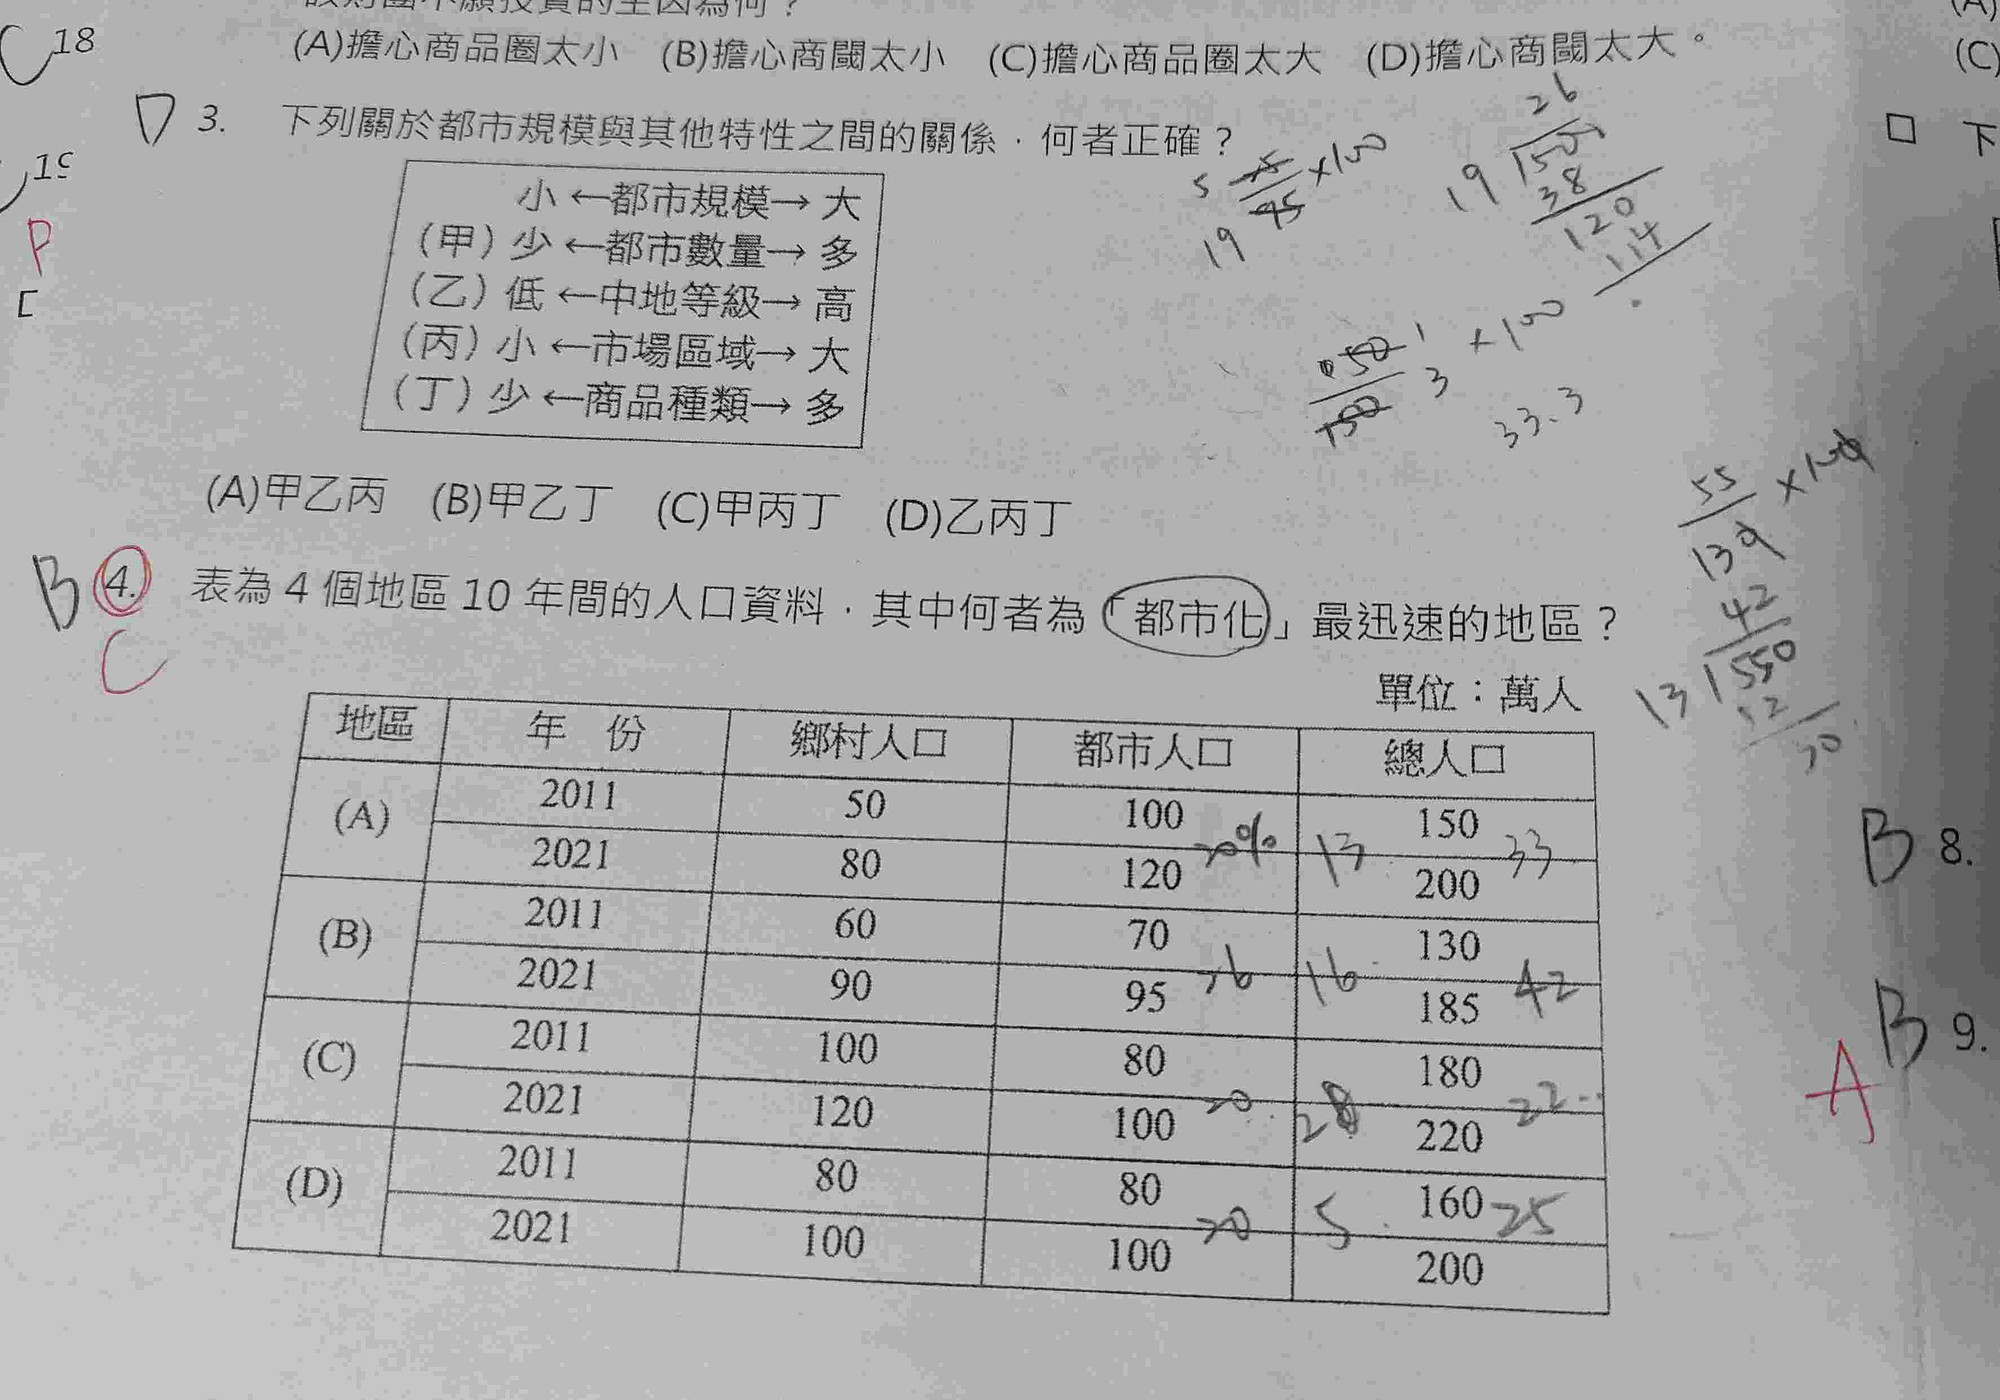 (A)擔心商品圈太小 (B)擔心商閾太小 (C)擔心商品圈太大 (D)擔心商閾太大。
(A)
(C)
C 18
D 3. 下列關於都市規模與其他特性之間的關係，何者正確？
□ 下
19
P
小←都市規模→大
(甲)少←都市數量→多
(乙)低←中地等級→高
(丙)小←市場區域→大
(丁)少←商品種類→多
×100
19
26
19
38
120
114
×100
3
33.3
(A)甲乙丙 (B)甲乙丁 (C)甲丙丁 (D)乙丙丁
55
42
13 550
52
30
B 4. 表為 4 個地區 10 年間的人口資料，其中何者為「都市化」最迅速的地區？
C
單位：萬人
地區 年 份 鄉村人口 都市人口 總人口
(A) 2011 50 100 150
20% 13 33
2021 80 120 200
(B) 2011 60 70 130
26 16 42
2021 90 95 185
(C) 2011 100 80 180
20 28 22
2021 120 100 220
(D) 2011 80 80 160
20 5 25
2021 100 100 200
B 8.
B 9.
A